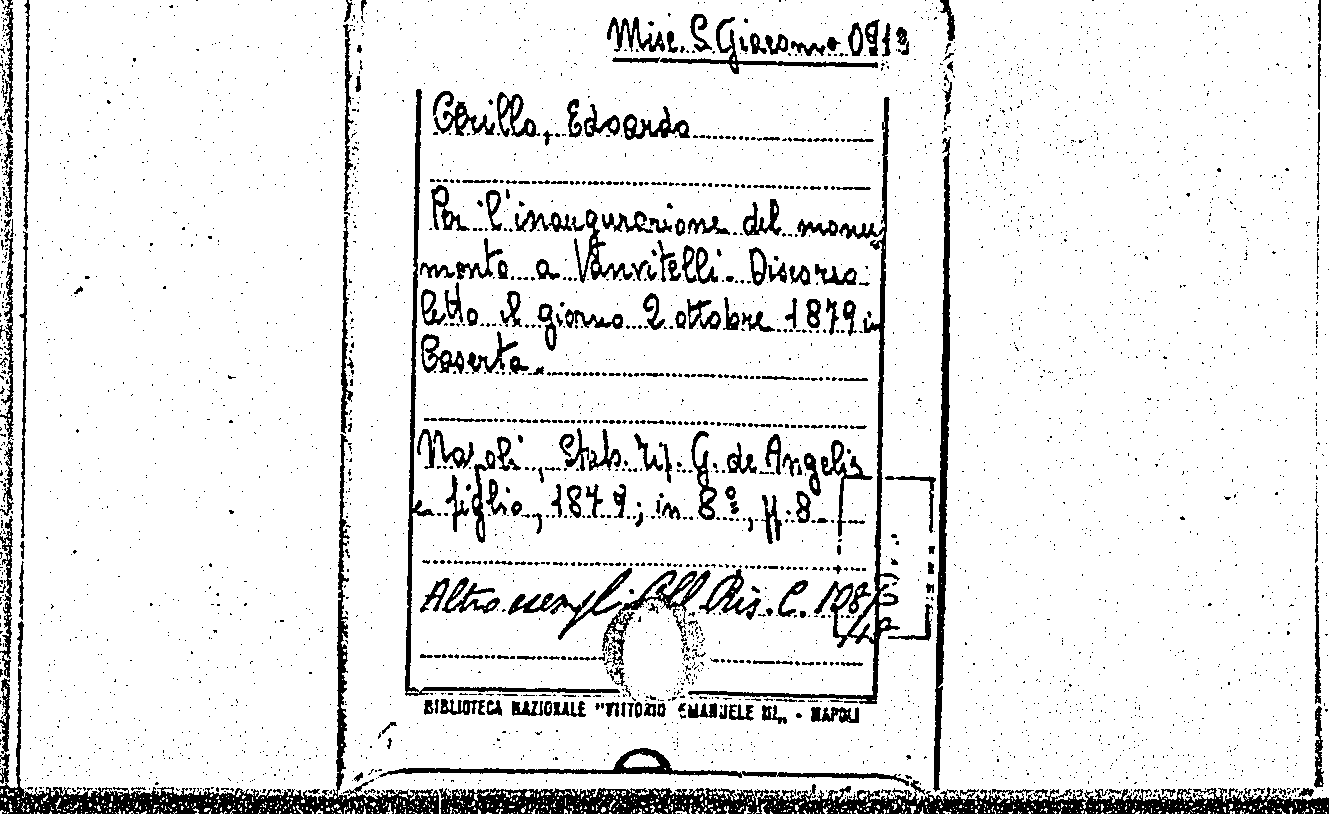 Misc. S. Giacomo 0913
Cerillo, Edoardo
Per l'inaugurazione del monu
mento a Vanvitelli. Discorso
letto il giorno 2 ottobre 1879 in
Caserta.
Napoli, Stab. Tip. G. de Angelis
e figlio, 1879; in 8º, pp. 8.
Altro esempl. Coll Ris. C. 108/
BIBLIOTECA NAZIONALE "VITTORIO EMANUELE III„ - NAPOLI